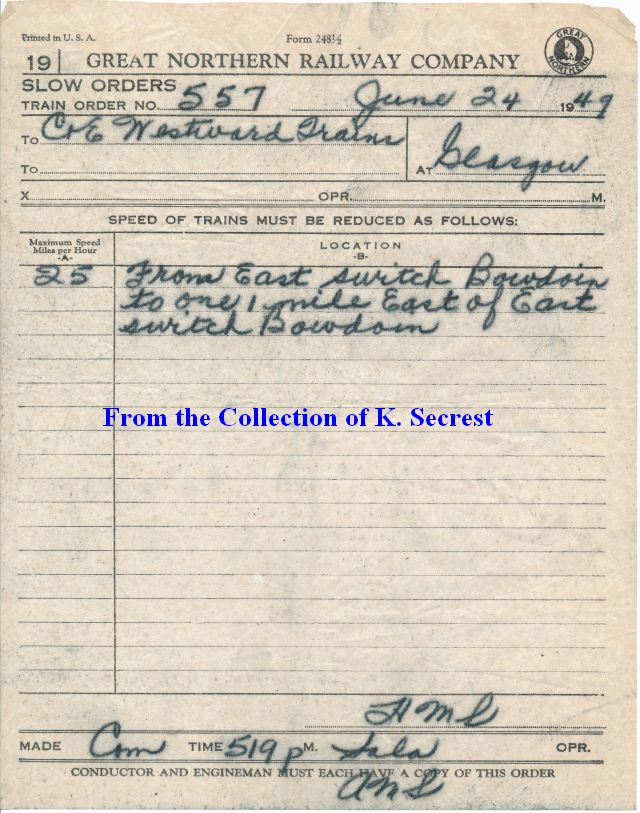 Printed in U. S. A.
Form 248½
19 GREAT NORTHERN RAILWAY COMPANY
GREAT NORTHERN
SLOW ORDERS
TRAIN ORDER NO. 557 June 24 1949
To C&E Westward Trains
To
AT Glasgow
X OPR. M.
SPEED OF TRAINS MUST BE REDUCED AS FOLLOWS:
Maximum Speed
Miles per Hour
-A-
LOCATION
-B-
25 From East switch Bowdoin
to one 1 mile East of East
switch Bowdoin
From the Collection of K. Secrest
HMS
MADE Com TIME 519 P M. Sala OPR.
CONDUCTOR AND ENGINEMAN MUST EACH HAVE A COPY OF THIS ORDER